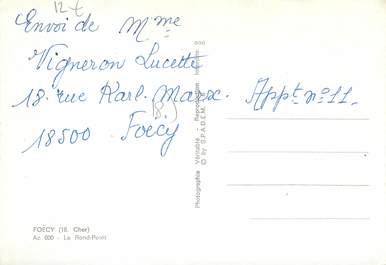 12 €
Envoi de Mme
Vigneron Lucette
18. rue Karl. Marx. Appt. n° 11.
(B.)
18500 Foëcy
Photographie Véritable - Reproduction Interdite
© by S.P.A.D.E.M.
FOËCY (18. Cher)
Ac 600 - Le Rond-Point